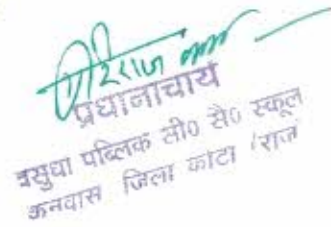 गिरिराज
प्रधानाचार्य
वसुधा पब्लिक सी० सै० स्कूल
कनवास जिला कोटा (राज